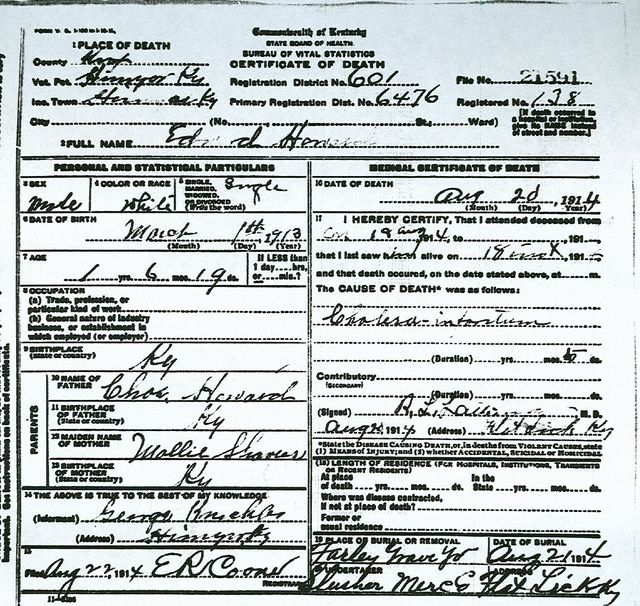 Commonwealth of Kentucky
STATE BOARD OF HEALTH
BUREAU OF VITAL STATISTICS
CERTIFICATE OF DEATH
1 PLACE OF DEATH
County Knox
Vot. Pct. Himyar Ky
Inc. Town
Registration District No. 601
Primary Registration Dist. No. 6476
File No. 21591
Registered No. 138
[If death occurred in a hospital or institution, give its NAME instead of street and number.]
City (No. St.; Ward)
2 FULL NAME Edward Howard
PERSONAL AND STATISTICAL PARTICULARS
3 SEX male
4 COLOR OR RACE white
5 SINGLE, MARRIED, WIDOWED, OR DIVORCED (Write the word) Single
6 DATE OF BIRTH
March 1st, 1913
(Month) (Day) (Year)
7 AGE
1 yrs. 6 mos. 19 ds.
If LESS than 1 day...hrs. or...min.?
8 OCCUPATION
(a) Trade, profession, or particular kind of work
(b) General nature of industry business, or establishment in which employed (or employer)
9 BIRTHPLACE
(State or country) Ky
PARENTS
10 NAME OF FATHER Chas. Howard
11 BIRTHPLACE OF FATHER
(State or country) Ky
12 MAIDEN NAME OF MOTHER Mollie
13 BIRTHPLACE OF MOTHER
(State or country) Ky
14 THE ABOVE IS TRUE TO THE BEST OF MY KNOWLEDGE
(Informant) George
(Address) Himyar Ky
15
Filed Aug 22, 1914 E R
REGISTRAR
11-3186
MEDICAL CERTIFICATE OF DEATH
16 DATE OF DEATH
Aug 20, 1914
(Month) (Day) (Year)
17 I HEREBY CERTIFY, That I attended deceased from
18 Aug 1914, to, 191
that I last saw him alive on 18 inst, 191
and that death occured, on the date stated above, at m.
The CAUSE OF DEATH* was as follows:
Cholera-infantum
(Duration) yrs. mos. 5 ds.
Contributory
(SECONDARY)
(Duration) yrs. mos. ds.
(Signed) M. D.
Aug 1914 (Address) Flat Lick Ky
*State the DISEASE CAUSING DEATH, or, in deaths from VIOLENT CAUSES, state (1) MEANS OF INJURY; and (2) whether ACCIDENTAL, SUICIDAL or HOMICIDAL
18 LENGTH OF RESIDENCE (FOR HOSPITALS, INSTITUTIONS, TRANSIENTS OR RECENT RESIDENTS)
At place of death yrs. mos. ds. In the State yrs. mos. ds.
Where was disease contracted, if not at place of death?
Former or usual residence
19 PLACE OF BURIAL OR REMOVAL
Farley Grave Yd
DATE OF BURIAL
Aug 21 1914
20 UNDERTAKER
Slusher Merc Co
ADDRESS
Flat Lick Ky